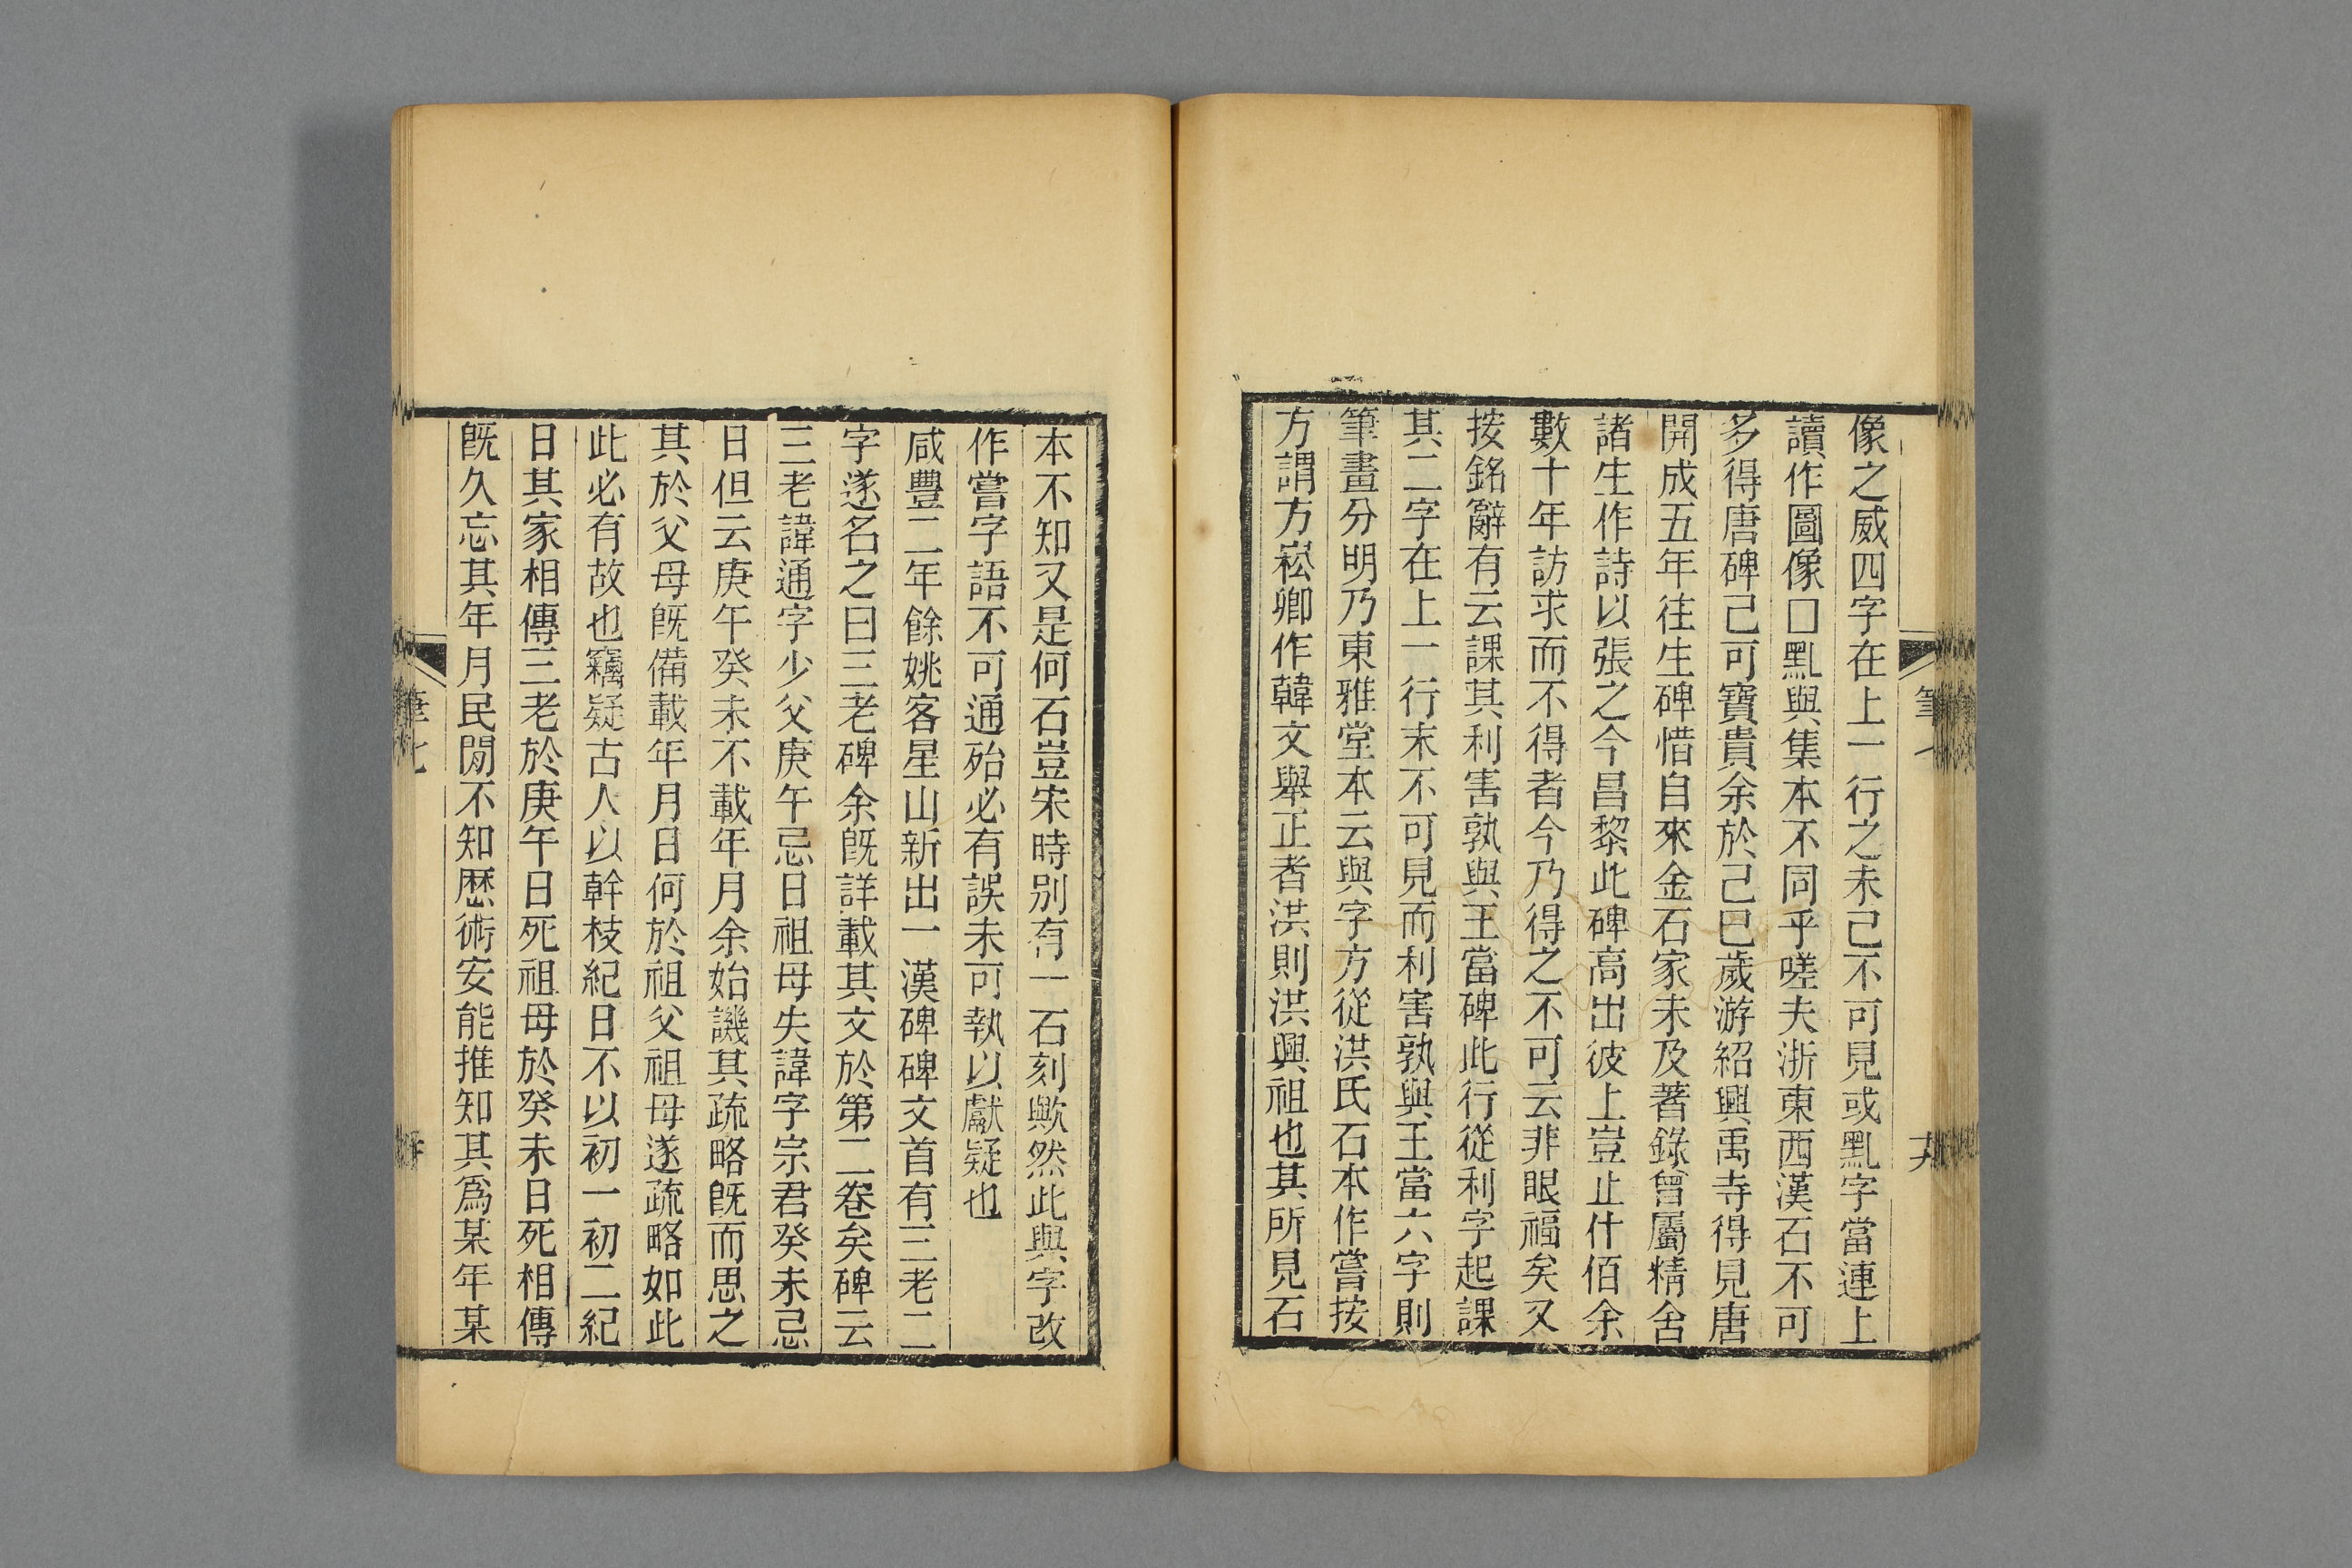 像之威四字在上一行之末己不可見或㸃字當連上
讀作圖像口㸃與集本不同乎嗟夫浙東西漢石不可
多得唐碑己可寶貴余於己巳歲游紹興禹寺得見唐
開成五年往生碑惜自來金石家未及著錄曾屬精舍
諸生作詩以張之今昌黎此碑高出彼上豈止什佰余
數十年訪求而不得者今乃得之不可云非眼福矣又
按銘辭有云課其利害孰與王當碑此行從利字起課
其二字在上一行末不可見而利害孰與王當六字則
筆畫分明乃東雅堂本云與字方從洪氏石本作嘗按
方謂方崧卿作韓文舉正者洪則洪興祖也其所見石
本不知又是何石豈宋時別有一石刻歟然此與字改
作嘗字語不可通殆必有誤未可執以獻疑也
咸豐二年餘姚客星山新出一漢碑碑文首有三老二
字遂名之曰三老碑余旣詳載其文於第二卷矣碑云
三老諱通字少父庚午忌日祖母失諱字宗君癸未忌
日但云庚午癸未不載年月余始譏其疏略旣而思之
其於父母旣備載年月日何於祖父祖母遂疏略如此
此必有故也竊疑古人以幹枝紀日不以初一初二紀
日其家相傳三老於庚午日死祖母於癸未日死相傳
旣久忘其年月民閒不知歷術安能推知其爲某年某
筆七